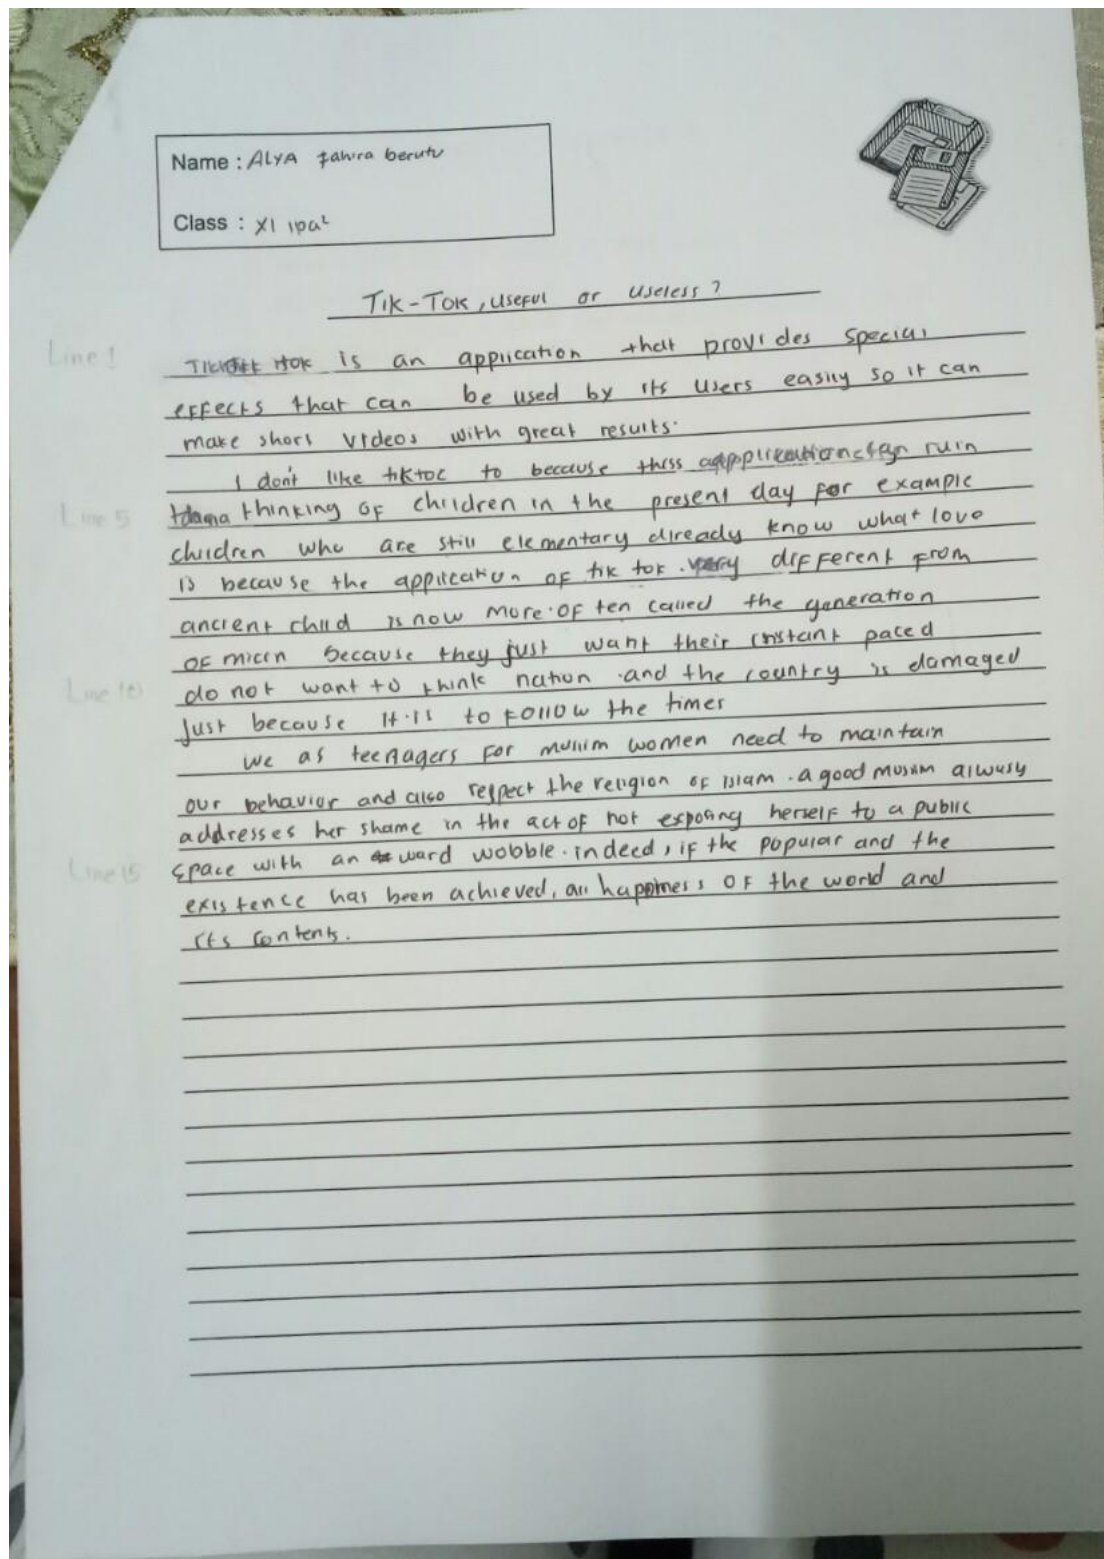 Name : ALYA Zahira berutu
Class : XI ipa²
Tik-Tok, useful or useless?
Line 1
tok is an application that provides special
effects that can be used by its users easily so it can
make short videos with great results.
I don't like tiktoc to because this application can ruin
Line 5
thinking of children in the present day for example
children who are still elementary already know what love
is because the application of tik tok. very different from
ancient child is now more often called the generation
of micin because they just want their instant paced
Line 10
do not want to think nation and the country is damaged
just because it is to follow the times
we as teenagers for muslim women need to maintain
our behavior and also respect the religion of islam. a good muslim alwasy
addresses her shame in the act of not exposing herself to a public
Line 15
space with an ward wobble. indeed, if the popular and the
existence has been achieved, all happiness of the world and
its contents.